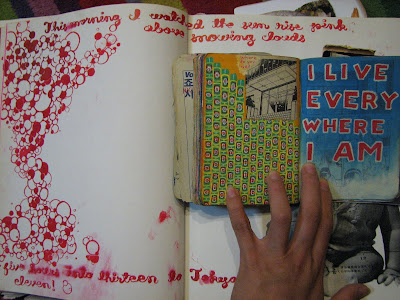 This morning I watched the sun rise pink
above snowing clouds
I LIVE
EVERY
WHERE
I AM
five hours into thirteen to Tokyo
eleven!